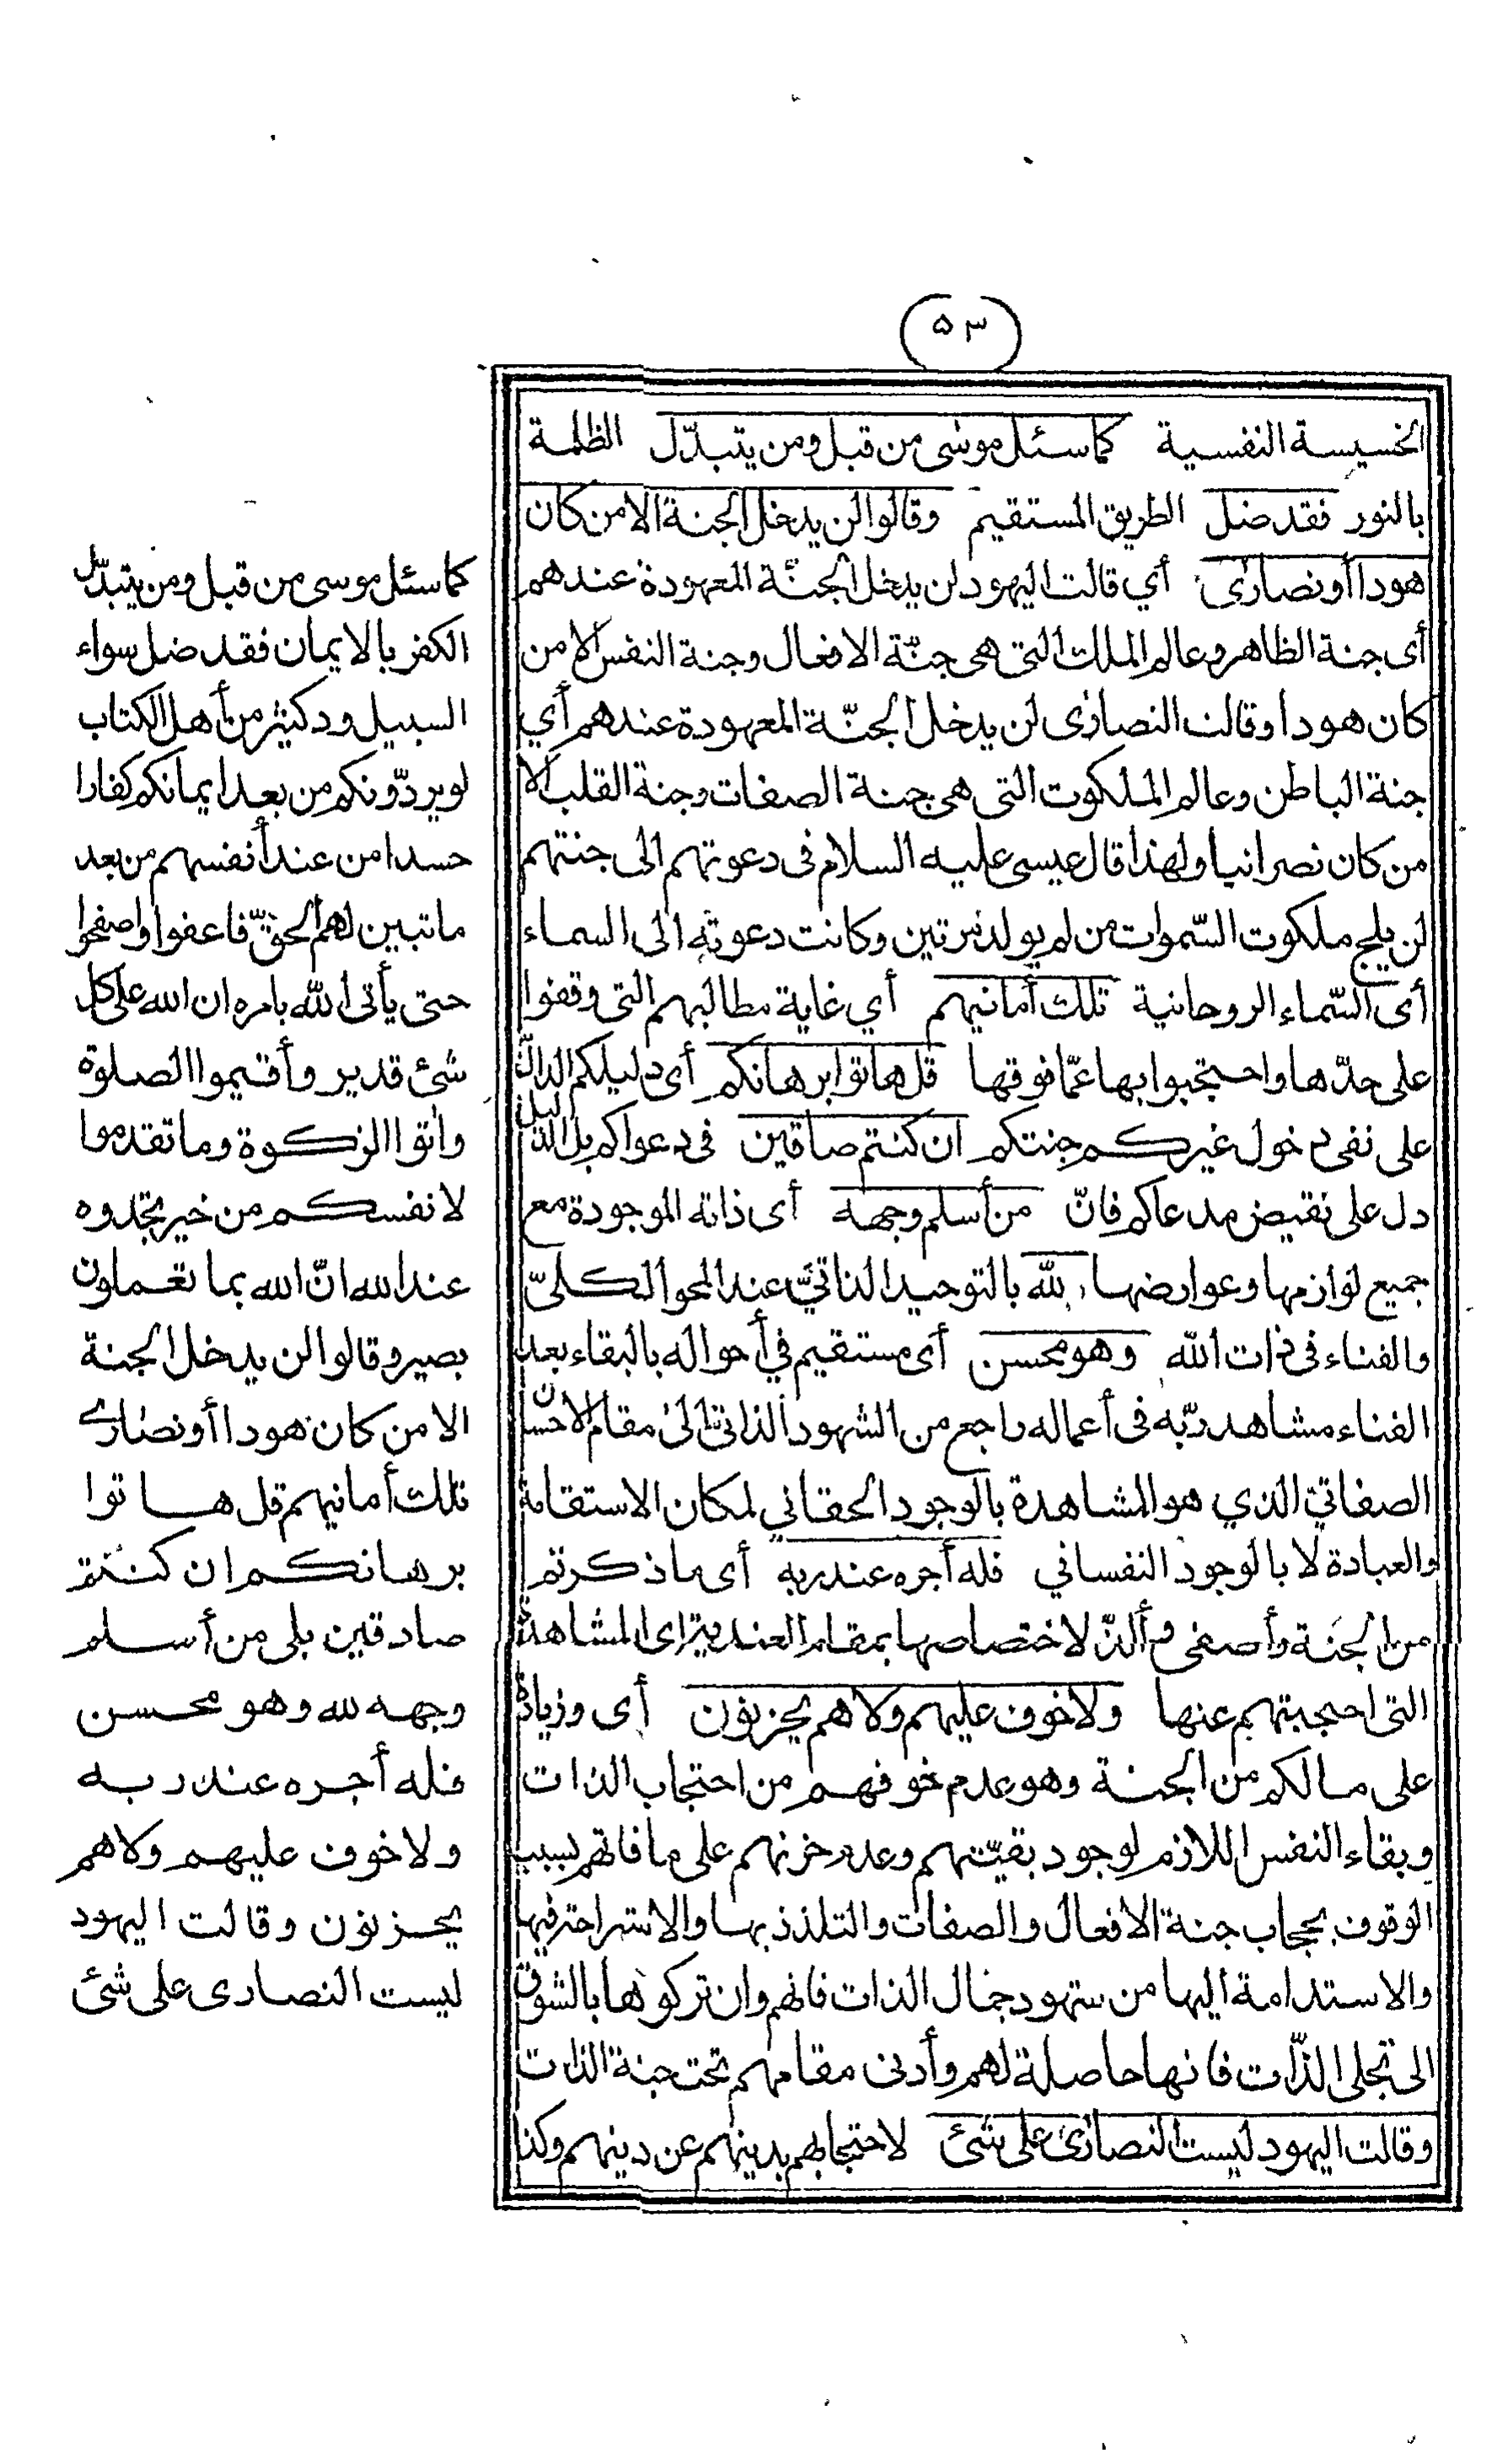 (٥٣)
الخسيسة النفسية كما سئل موسى من قبل ومن يتبدّل الظلمة
بالنور فقد ضل الطريق المستقيم وقالوا لن يدخل الجنة الا من كان
هودا أو نصارى أي قالت اليهود لن يدخل الجنّة المعهودة عندهم
أى جنة الظاهر وعالم الملك التى هى جنّة الافعال وجنة النفس الا من
كان هودا وقالت النصارى لن يدخل الجنّة المعهودة عندهم أي
جنة الباطن وعالم الملكوت التى هى جنة الصفات وجنة القلب الا
من كان نصرانيا ولهذا قال عيسى عليه السلام فى دعوتهم الى جنتهم
لن يلج ملكوت السّموات من لم يولد مرتين وكانت دعوته الى السماء
أى السّماء الروحانية تلك أمانيهم أي غاية مطالبهم التى وقفوا
على حدّها واحتجبوا بها عمّا فوقها قل هاتوا برهانكم أى دليلكم الدالّ
على نفى دخول غيركم جنتكم ان كنتم صادقين فى دعواكم بل الدليل
دل على نقيض مدعاكم فانّ من أسلم وجهه أى ذاته الموجودة مع
جميع لوازمها وعوارضها لله بالتوحيد الذاتيّ عند المحو الكلىّ
والفناء فى ذات الله وهو محسن أى مستقيم في أحواله بالبقاء بعد
الفناء مشاهد ربّه فى أعماله راجع من الشهود الذاتيّ الى مقام الاحسان
الصفاتيّ الذي هو المشاهدة بالوجود الحقاني لمكان الاستقامة
والعبادة لا بالوجود النفساني فله أجره عند ربه أى ما ذكرتم
من الجنة وأصفى وألذّ لاختصاصها بمقام العندية اى المشاهدة
التى احتجبتهم عنها ولا خوف عليهم ولا هم يحزنون أى وزيادة
على مالكم من الجنة وهو عدم خوفهم من احتجاب الذات
وبقاء النفس اللازم لوجود بقيّتهم وعدم حزنهم على ما فاتهم بسبب
الوقوف بحجاب جنة الافعال والصفات والتلذذ بها والاستراحة فيها
والاستدامة اليها من شهود جمال الذات فانهم وان تركوها بالشوق
الى تجلى الذّات فانها حاصلة لهم وأدنى مقامهم تحت جنة الذات
وقالت اليهود ليست النصارى على شئ لاحتجابهم بدينهم عن دينهم وكذا
كما سئل موسى من قبل ومن يتبدّل
الكفر بالايمان فقد ضل سواء
السبيل ود كثير من أهل الكتاب
لو يردّونكم من بعد ايمانكم كفارا
حسدا من عند أنفسهم من بعد
ما تبين لهم الحقّ فاعفوا واصفحوا
حتى يأتى الله بامره ان الله على كل
شئ قدير وأقيموا الصلوة
واٰتوا الزكوة وما تقدموا
لانفسكم من خير تجدوه
عند الله انّ الله بما تعملون
بصير وقالوا لن يدخل الجنة
الا من كان هودا أو نصارى
تلك أمانيهم قل هاتوا
برهانكم ان كنتم
صادقين بلى من أسلم
وجهه لله وهو محسن
فله أجره عند ربه
ولا خوف عليهم ولا هم
يحزنون وقالت اليهود
ليست النصارى على شئ